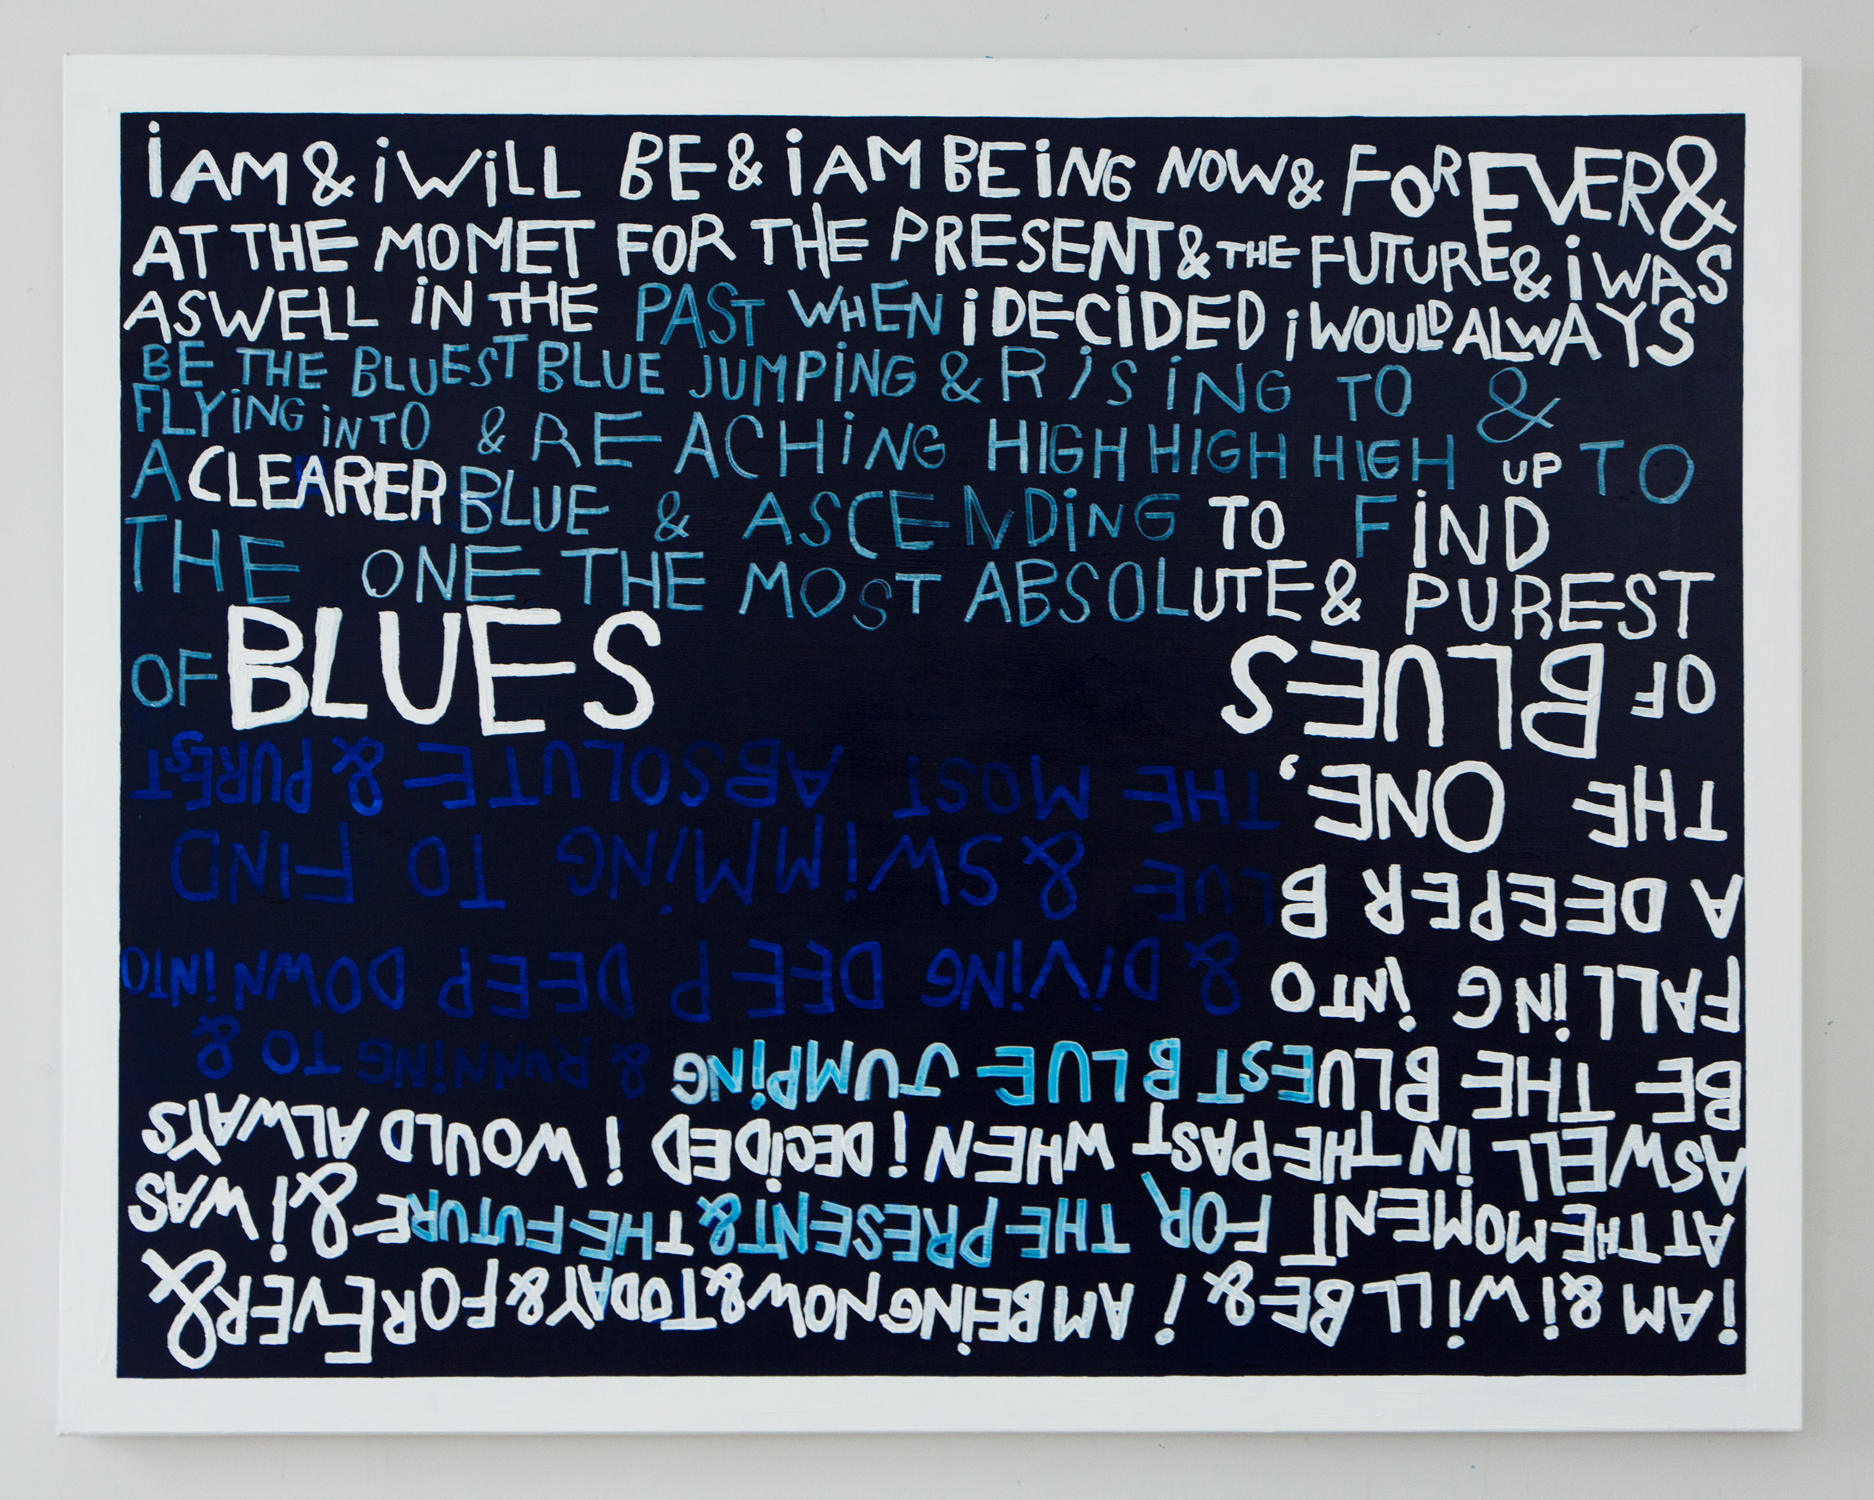 i AM & i WiLL BE & i AM BEiNG NOW & FOREVER &
AT THE MOMET FOR THE PRESENT & THE FUTURE & i WAS
ASWELL iN THE PAST WHEN i DECiDED i WOULD ALWAYS
BE THE BLUEST BLUE JUMPiNG & RiSiNG TO &
FLYiNG iNTO & REACHiNG HIGH HIGH HIGH UP TO
A CLEARER BLUE & ASCENDiNG TO FiND
THE ONE THE MOST ABSOLUTE & PUREST
OF BLUES
i AM & i WiLL BE & i AM BEiNG NOW & TODAY & FOREVER &
AT THE MOMENT FOR THE PRESENT & THE FUTURE & i WAS
ASWELL iN THE PAST WHEN i DECiDED i WOULD ALWAYS
BE THE BLUEST BLUE JUMPiNG & RUNNiNG TO &
FALLiNG iNTO & DiViNG DEEP DEEP DOWN iNTO
A DEEPER BLUE & SWiMMiNG TO FIND
THE ONE, THE MOST ABSOLUTE & PUREST
OF BLUES